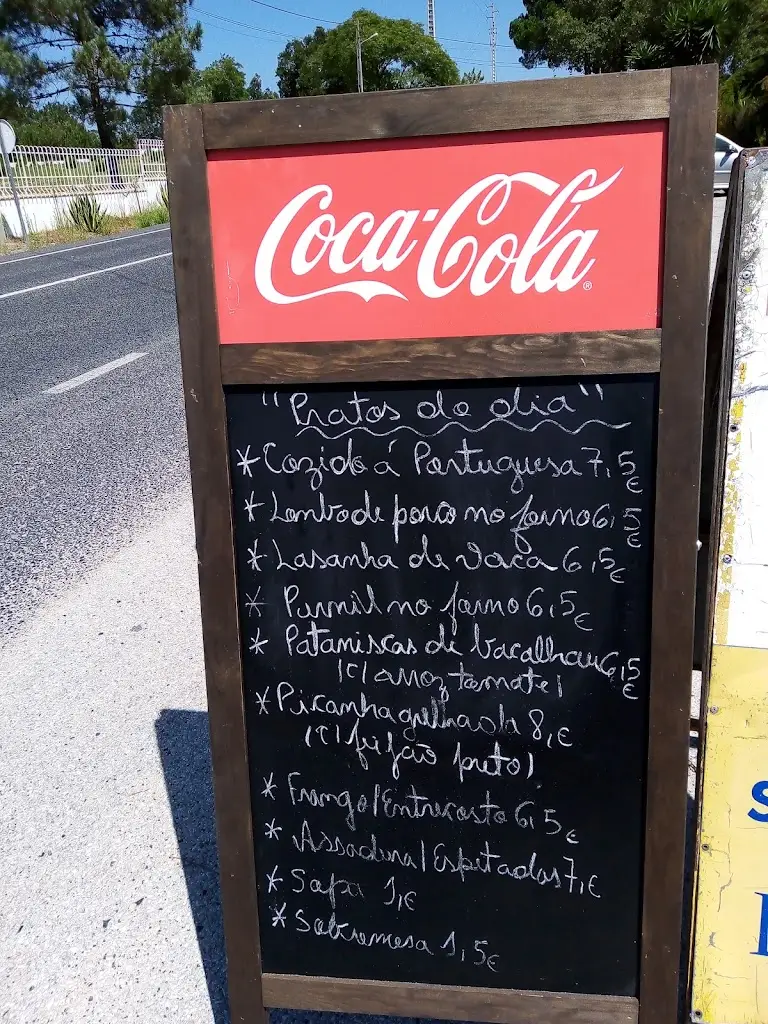 Coca-Cola
"Pratos do dia"
* Cozido á Portuguesa 7,5€
* Lombo de porco no forno 6,5€
* Lasanha de vaca 6,5€
* Pernil no forno 6,5€
* Pataniscas de bacalhau 6,5€
(c/ arroz tomate)
* Picanha grelhada 8,€
(c/ feijão preto)
* Frango/Entrecosto 6,5€
* Assadura/Espetadas 7,€
* Sopa 1,€
* Sobremesa 1,5€